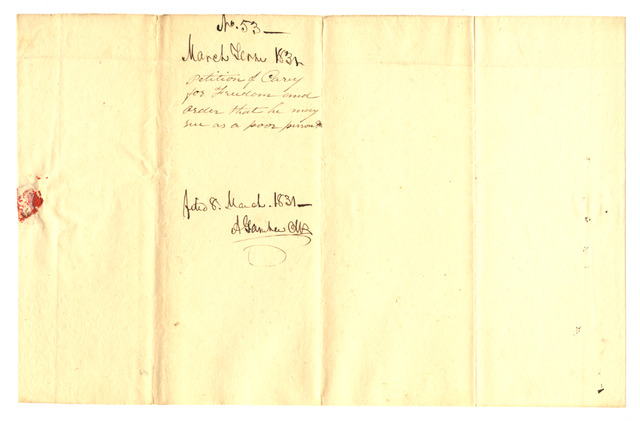 No. 53
March Term 1831
petition of Carey
for Freedom and
order that he may
sue as a poor person
filed 8. March. 1831
A Gamble Clk